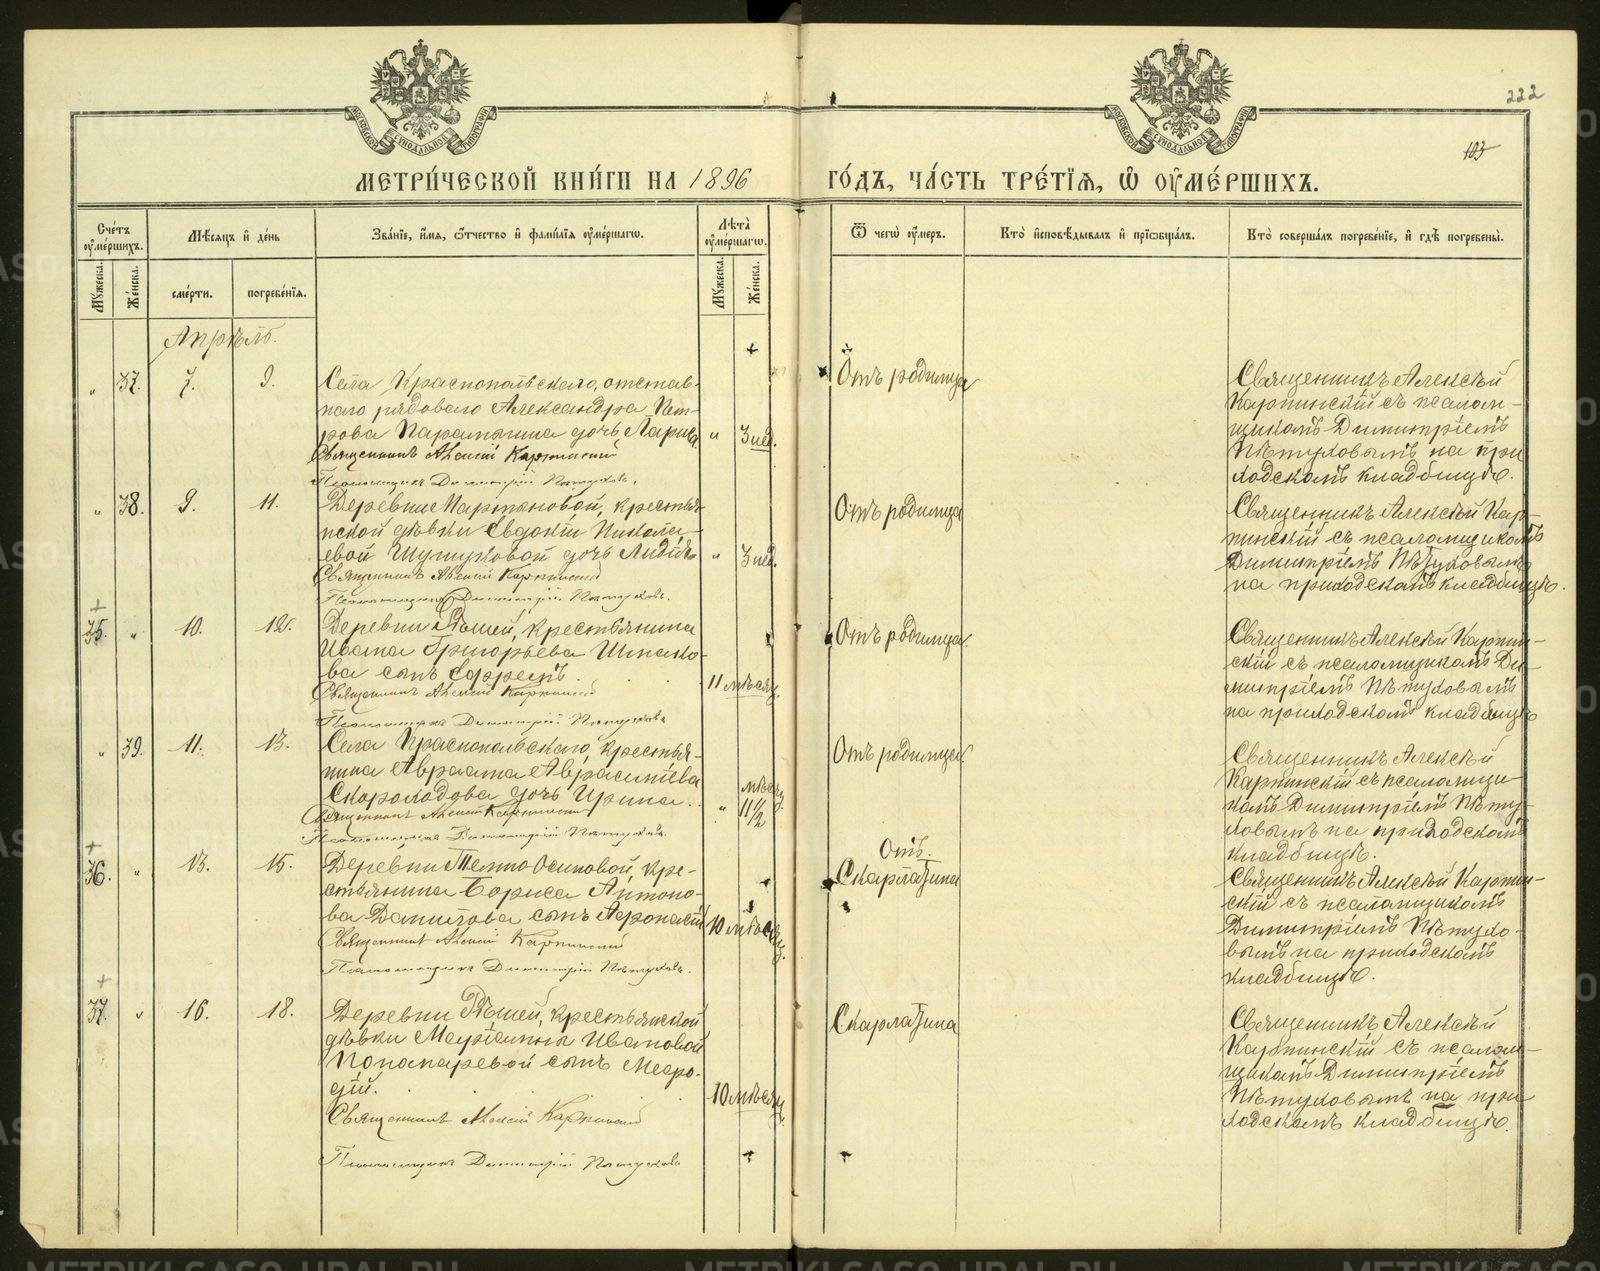 222
103
МЕТРИ́ЧЕСКОЙ КНИ́ГИ НА 1896 ГО́ДЪ, ЧА́СТЬ ТРЕ́ТІѦ, Ѡ҆ ОУ҆МЕ́РШИХЪ.
Сче́тъ оу҆ме́ршихъ.
Мѣ́сяцъ и҆ де́нь
Зва́нїе, и҆́мя, ѻ҆́тчество и҆ фамилїя оу҆ме́ршагѡ.
Лѣ́та оу҆ме́ршагѡ.
Ѿ чегѡ̀ оу҆́меръ.
Кто̀ и҆сповѣ́дывалъ и҆ прїѡбща́лъ.
Кто̀ соверша́лъ погребе́нїе, и҆ гдѣ̀ погребены̀.
Му́жеска.
Же́нска.
сме́рти.
погребе́нїя.
Му́жеска.
Же́нска.
Апрѣль.
" 37. 7. 9.
Села Краснопольскаго, отстав-
наго рядоваго Александра Пет-
рова Парамзина дочь Лариса
Священникъ Алексій Карпинскій
Псаломщикъ Димитрій Пѣтуховъ.
" 3 нед.
Отъ родимца
Священникъ Алексѣй
Карпинскій съ псалом-
щикомъ Димитріемъ
Пѣтуховымъ на при
ходскомъ кладбищѣ.
" 38. 9. 11.
Деревни Мартяновой, крестья-
нской дѣвки Евдокіи Никола-
евой Шутуховой дочь Лидія
Священникъ Алексій Карпинскій
Псаломщикъ Димитрій Пѣтуховъ.
" 3 нед.
Отъ родимца
Священникъ Алексѣй Кар-
пинскій съ псаломщикомъ
Димитріемъ Пѣтуховымъ
на приходскомъ кладбищѣ.
35. " 10. 12.
Деревни Гѣшей, крестьянина
Ивана Григорьева Шпако-
ва сынъ Ефремъ.
Священникъ Алексій Карпинскій
Псаломщикъ Димитрій Пѣтуховъ
11 мѣсяц.
Отъ родимца.
Священникъ Алексѣй Карпин-
скій съ псаломщикомъ Ди-
митріемъ Пѣтуховымъ
на приходскомъ кладбищѣ
" 39. 11. 13.
Села Краснопольскаго, крестья-
нина Авраама Аврамліева
Скороходова дочь Ирина.
Священникъ Алексій Карпинскій
Псаломщикъ Димитрій Пѣтуховъ.
" мѣсяц. 11 1/2
Отъ родимца.
Священникъ Алексѣй
Карпинскій съ псаломщи-
комъ Димитріемъ Пѣту-
ховымъ на приходскомъ
кладбищѣ.
36. " 13. 15.
Деревни Темно Осиновой, кре-
стьянина Бориса Антоно-
ва Данилова сынъ Аѳонасій
Священникъ Алексій Карпинскій
Псаломщикъ Димитрій Пѣтуховъ.
10 мѣсяц.
Отъ
Скарлатина
Священникъ Алексѣй Карпин-
скій съ псаломщикомъ
Димитріемъ Пѣтухо-
вымъ на приходскомъ
кладбищѣ.
37. " 16. 18.
Деревни Гѣшей, крестьянской
дѣвки Маріанны Ивановой
Пономаревой сынъ Меѳо-
дій.
Священникъ Алексій Карпинскій
Псаломщикъ Димитрій Пѣтуховъ
10 мѣсяц.
Скарлатина
Священникъ Алексѣй
Карпинскій съ псалом-
щикомъ Димитріемъ
Пѣтуховымъ на при
ходскомъ кладбищѣ.
METRIKI.GASO-URAL.RU